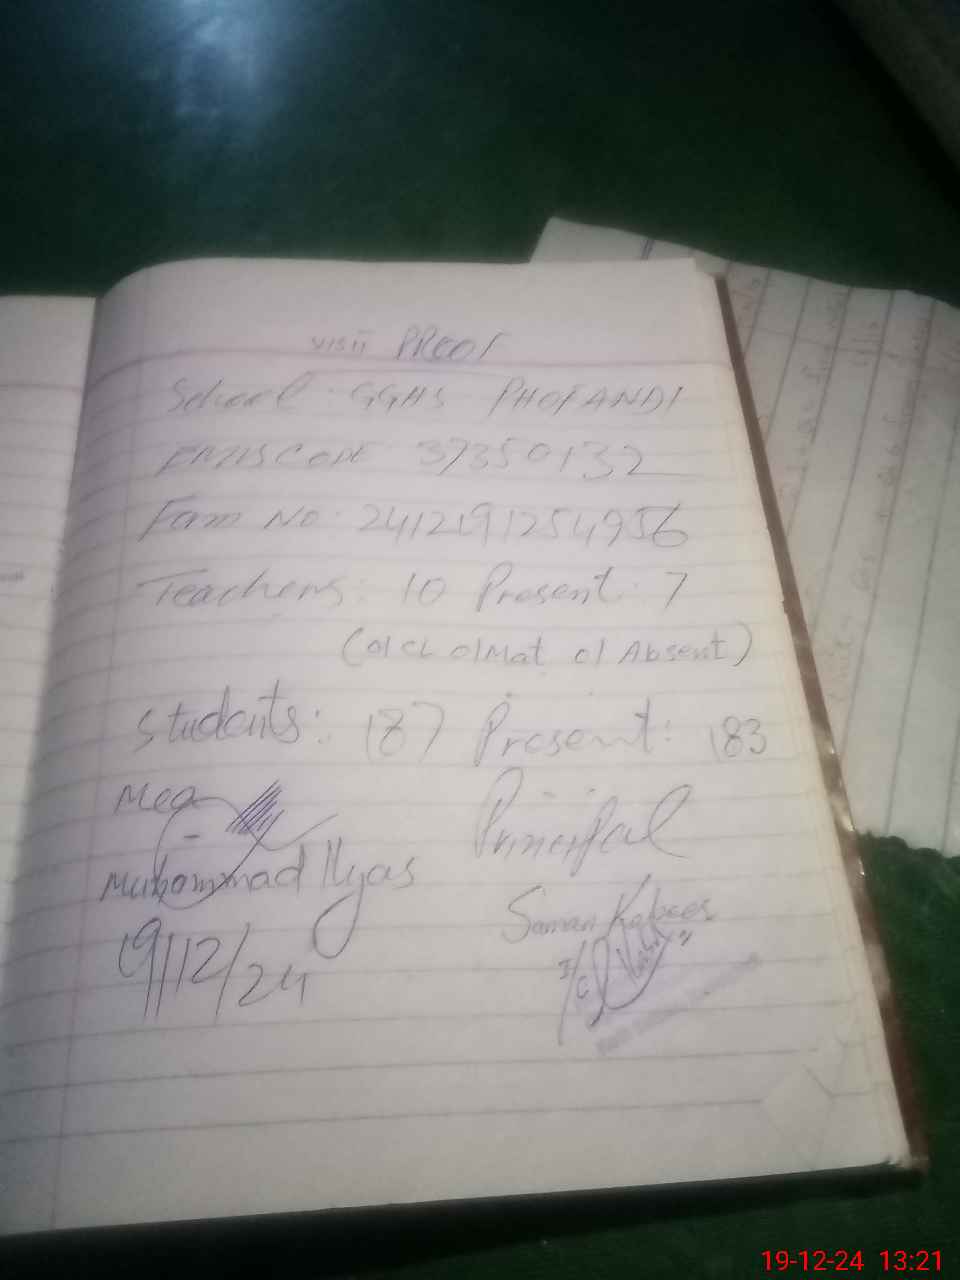 VISIT PROOF
School: GGHS PHOFANDI
EMIS CODE: 37350132
Fam No: 2412191254956
Teachers: 10 Present: 7
(01 CL 01 Mat 01 Absent)
Students: 187 Present: 183
Mea
Principal
Muhammad Ilyas
Saman
19/12/24
I/C
19-12-24 13:21